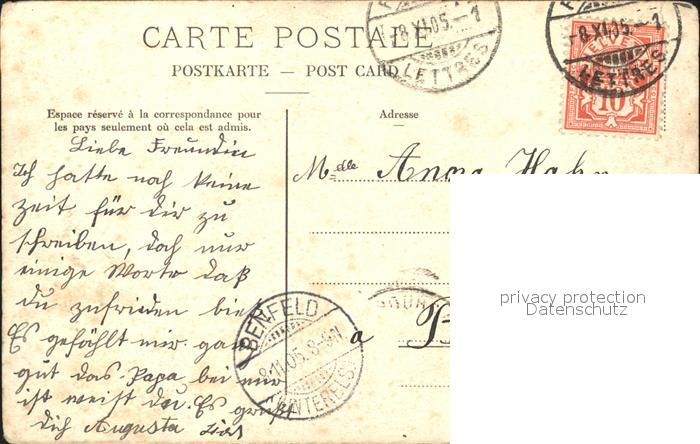 CARTE POSTALE
POSTKARTE — POST CARD
8.XI.05.–1
LETTRES
8.XI.05.–1
LETTRES
10
Espace réservé à la correspondance pour
les pays seulement où cela est admis.
Adresse
Liebe Freundin
Ich hatte noch keine
zeit für dir zu
schreiben, doch nur
einige Worte daß
du zufrieden bie
Es gefählt mir gan
gut das Papa bei mir
ist weist du. Es grüßt
dich Augusta
Mdlle Anna Hahn
a B
BENFELD
8.11.05. 8-9N.
(UNTERELS.)
privacy protection
Datenschutz